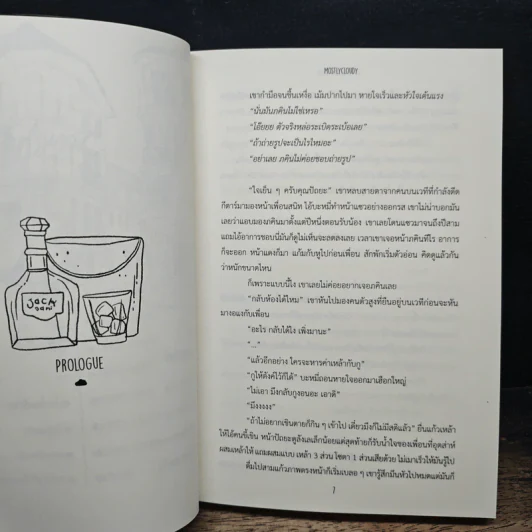 Jack
PROLOGUE
MOSTLYCLOUDY
เขากำมือจนชื้นเหงื่อ เม้มปากไปมา หายใจเร็วและหัวใจเต้นแรง
“นั่นมันภคินไม่ใช่เหรอ”
“โอ๊ยยย ตัวจริงหล่อระเบิดระเบ้อเลย”
“ถ้าถ่ายรูปจะเป็นไรไหมอะ”
“อย่าเลย ภคินไม่ค่อยชอบถ่ายรูป”
“ใจเย็น ๆ ครับคุณปัถยะ” เขาหลบสายตาจากคนบนเวทีที่กำลังดีด
กีตาร์มามองหน้าเพื่อนสนิท ไอ้บะหมี่ทำหน้าแซวอย่างออกรส เขาไม่น่าบอกมัน
เลยว่าแอบมองภคินมาตั้งแต่ปีหนึ่งตอนรับน้อง เขาเลยโดนแซวมาจนถึงปีสาม
แถมไอ้อาการชอบนี่มันก็ดูไม่เห็นจะลดลงเลย เวลาเขาเจอหน้าภคินทีไร อาการ
ก็จะออก หน้าแดงก็มา แก้มกับหูไปก่อนเพื่อน สักพักเริ่มตัวอ่อน คิดดูแล้วกัน
ว่าหนักขนาดไหน
ก็เพราะแบบนี้ไง เขาเลยไม่ค่อยอยากเจอภคินเลย
“กลับห้องได้ไหม” เขาหันไปมองคนตัวสูงที่ยืนอยู่บนเวทีก่อนจะหัน
มางอแงกับเพื่อน
“อะไร กลับได้ไง เพิ่งมานะ”
“...”
“แล้วอีกอย่าง ใครจะหารค่าเหล้ากับกู”
“กูให้ตังค์ไว้ก็ได้” บะหมี่ถอนหายใจออกมาเฮือกใหญ่
“ไม่เอา มึงกลับกูงอนอะ เอาดิ”
“มึงงงงง”
“ถ้าไม่อยากเขินตายก็กิน ๆ เข้าไป เดี๋ยวมึงก็ไม่มีสติแล้ว” ยื่นแก้วเหล้า
ให้ไอ้คนขี้เขิน หน้าปัถยะดูลังเลเล็กน้อยแต่สุดท้ายก็รับน้ำใจของเพื่อนที่อุตส่าห์
ผสมเหล้าให้ แถมผสมแบบ เหล้า 3 ส่วน โซดา 1 ส่วนเสียด้วย ไม่เมาเร็วให้มันรู้ไป
ดื่มไปสามแก้วภาพตรงหน้าก็เริ่มเบลอ ๆ เขารู้สึกมึนหัวไปหมดแต่มันก็
7